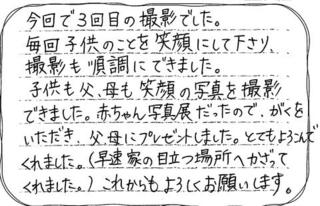 今回で3回目の撮影でした。
毎回子供のことを笑顔にして下さり、
撮影も順調にできました。
子供も父、母も笑顔の写真を撮影
できました。赤ちゃん写真展だったので、がくを
いただき、父、母にプレゼントしました。とてもよろこんで
くれました。(早速家の目立つ場所へかざって
くれました。)これからもよろしくお願いします。